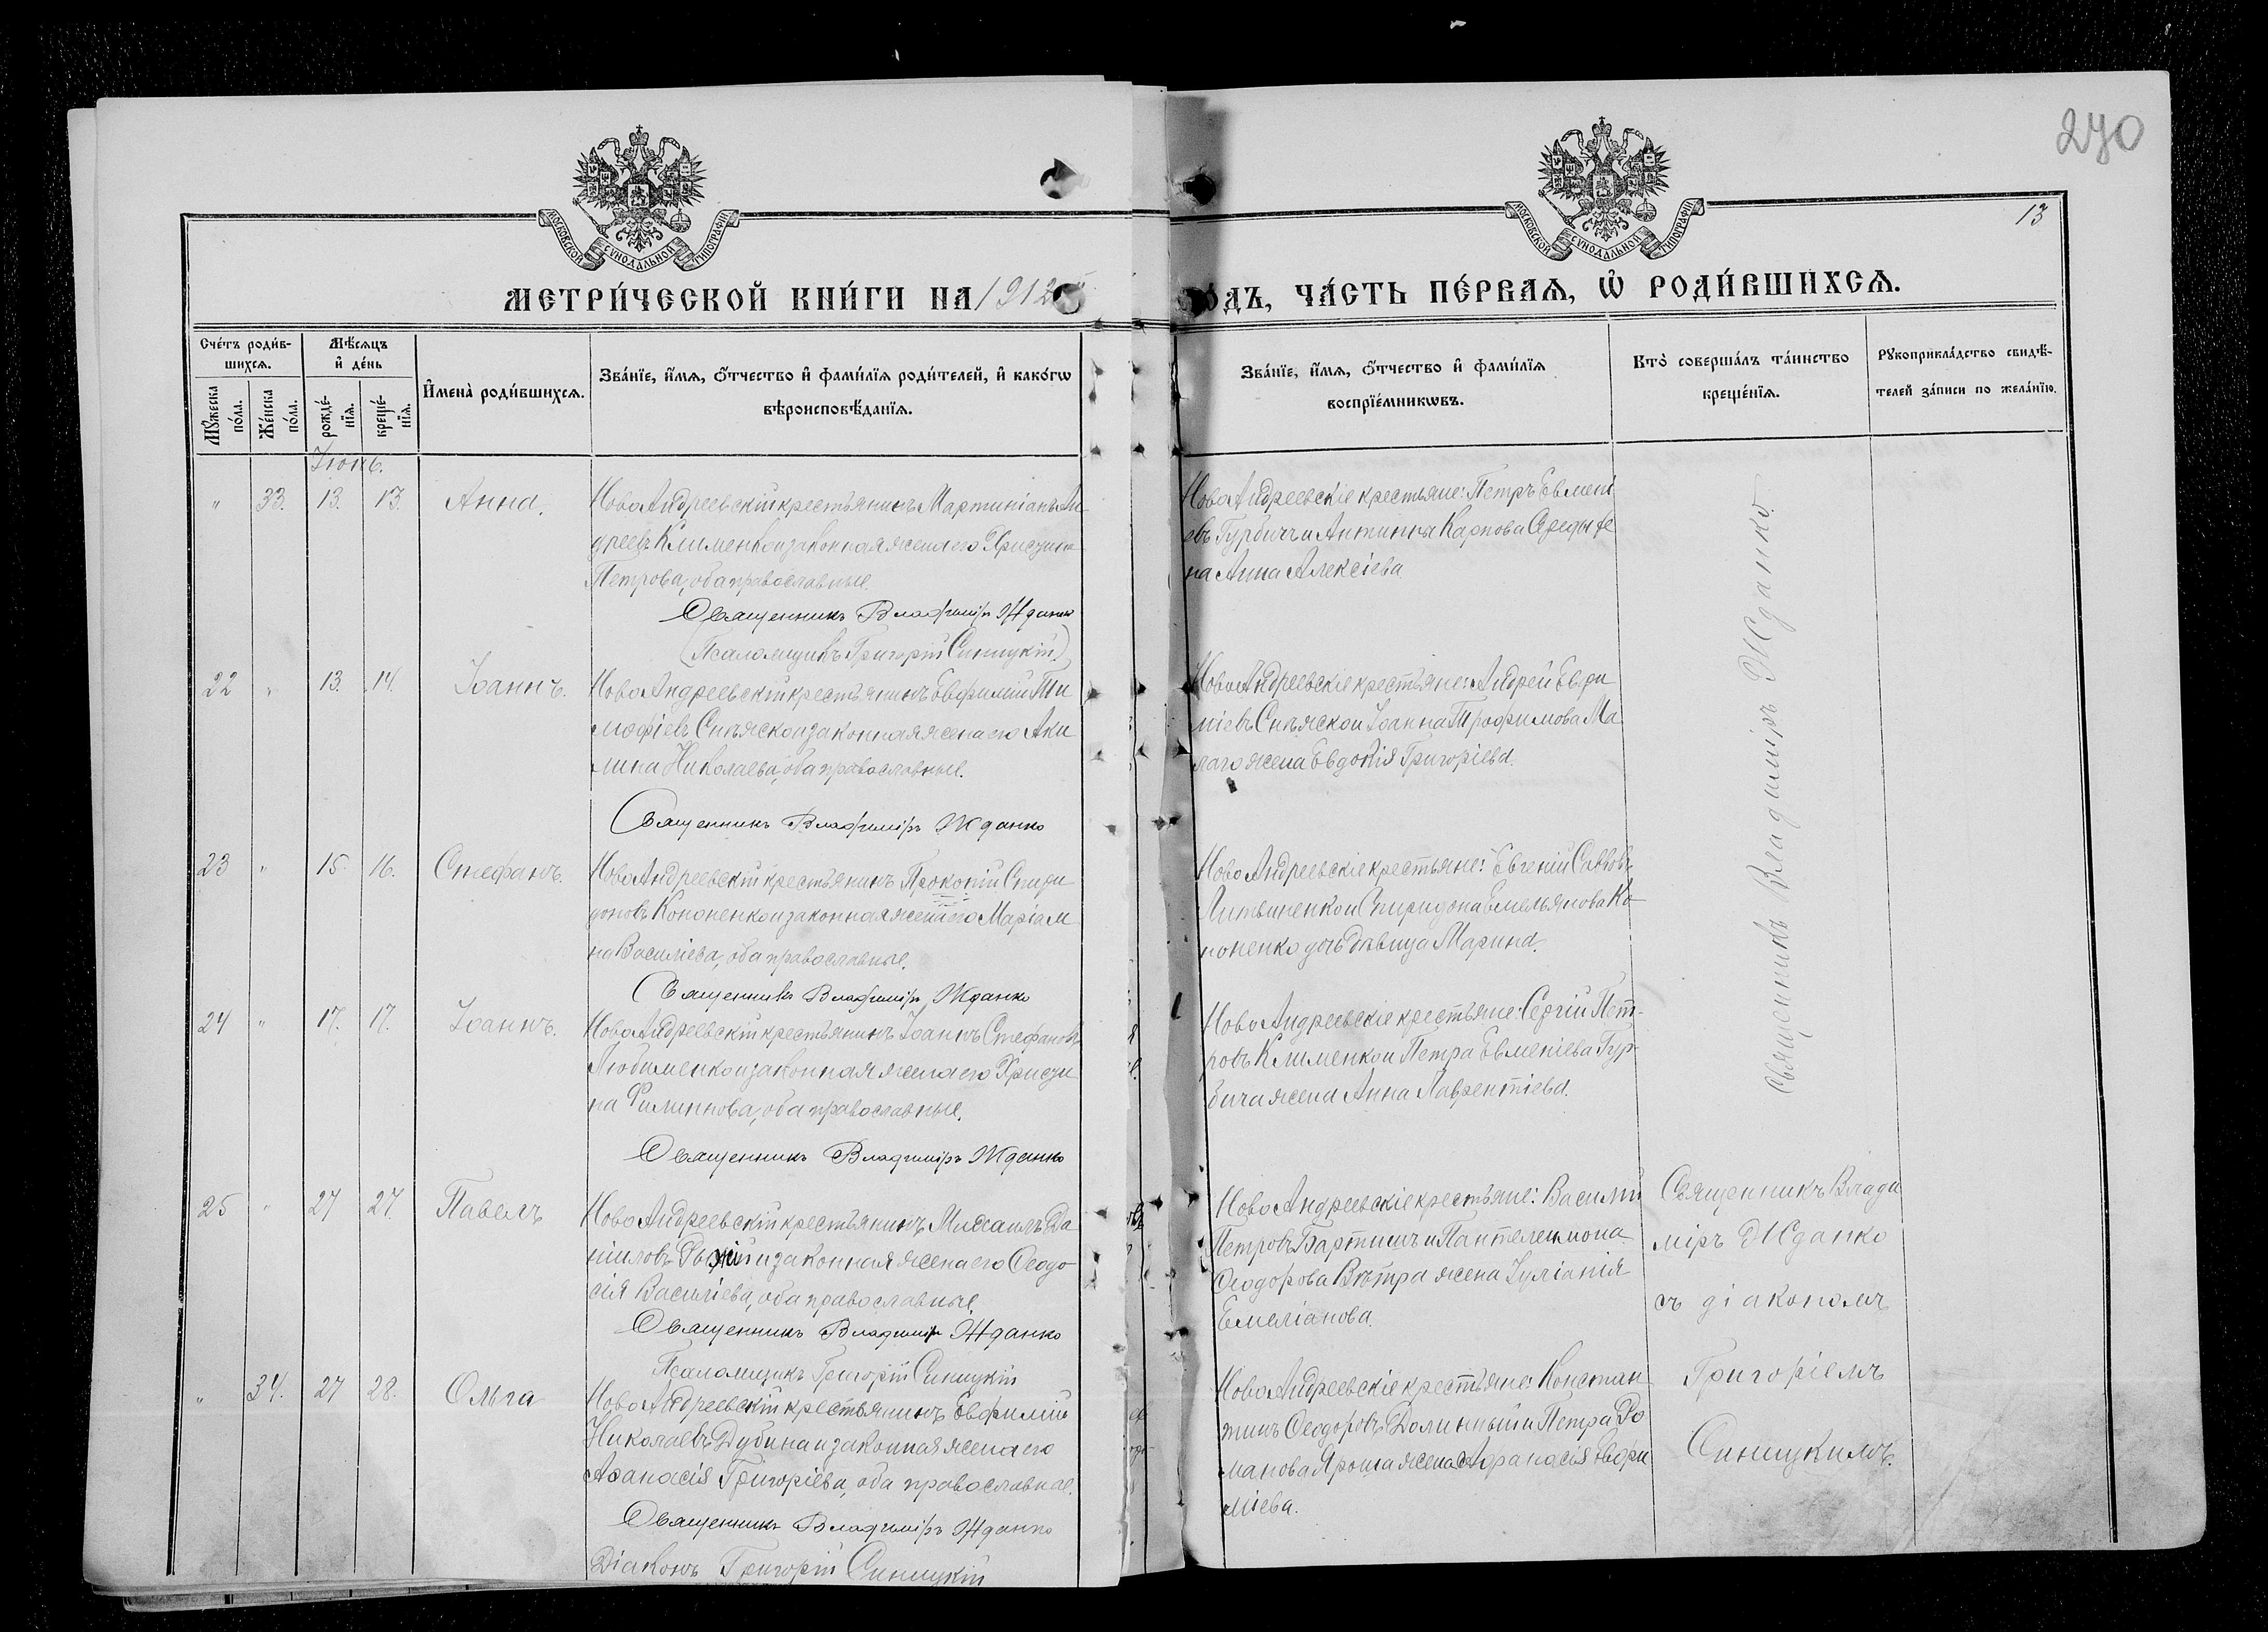 270
13
МОСКОВСКОЙ СѴНОДАЛЬНОЙ ТИПОГРАФІИ
МОСКОВСКОЙ СѴНОДАЛЬНОЙ ТИПОГРАФІИ
МЕТРИ́ЧЕСКОЙ КНИ́ГИ НА 1912 ГО́ДЪ, ЧА́СТЬ ПЕ́РВАѦ, Ѡ҆ РОДИ́ВШИХСѦ.
Сче́тъ роди́в-
шихсѧ.
Мꙋ́жеска по́ла.
Же́нска по́ла.
Мѣ́сѧцъ
и҆ де́нь
рожде́-
нїѧ.
креще́-
нїѧ.
И҆мена̀ роди́вшихсѧ.
Зва́нїе, и҆́мѧ, ѻ҆́тчество и҆ фамѝлїѧ роди́телей, и҆ како́гѡ
вѣроисповѣ́данїѧ.
Зва́нїе, и҆́мѧ, ѻ҆́тчество и҆ фамѝлїѧ
воспрїе́мникѡвъ.
Кто̀ соверша́лъ та́инство
креще́нїѧ.
Рꙋкоприкла́дство свидѣ́-
телей за́писи по жела́нїю.
Іюнь.
" 33. 13. 13. Анна.
НовоАндреевскій крестьянинъ Мартиніанъ Ан-
дреевъ Клименко и законная жена его Христина
Петрова, оба православные.
Священникъ Владиміръ Жданко
(Псаломщикъ Григорій Синицкій)
НовоАндреевскіе крестьяне: Петръ Евмені
евъ Гурбичъ и Антипы Карпова Середы же
на Анна Алексіева.
22 " 13. 14. Іоаннъ.
НовоАндреевскій крестьянинъ Евфимій Ти
мофіевъ Сняжко и законная жена его Аки
лина Николаева, оба православные.
Священникъ Владиміръ Жданко
НовоАндреевскіе крестьяне: Андрей Евфи
міевъ Сняжко и Іоанна Трофимова Ма
лаго жена Евдокія Григоріева.
23 " 15. 16. Стефанъ.
НовоАндреевскій крестьянинъ Прокопій Спири
доновъ Кононенко и законная жена его Маріам
на Василіева, оба православные.
Священникъ Владиміръ Жданко
НовоАндреевскіе крестьяне: Евгеній Саввовъ
Литвиненко и Спиридона Емельянова Ко-
ноненко дочь дѣвица Марина.
24 " 17. 17. Іоаннъ.
НовоАндреевскій крестьянинъ Іоаннъ Стефановъ
Любименко и законная жена его Христи
на Филиппова, оба православные.
Священникъ Владиміръ Жданко
НовоАндреевскіе крестьяне: Сергій Пет-
ровъ Клименко и Петра Евменіева Гур-
бича жена Анна Лаврентіева.
Священникъ Владиміръ Жданко.
25 " 27 27. Павелъ
НовоАндреевскій крестьянинъ Михаилъ Да
ніиловъ и законная жена его Ѳеодо-
сія Василіева, оба православные.
Священникъ Владиміръ Жданко
Псаломщикъ Григорій Синицкій
НовоАндреевскіе крестьяне: Василій
Петровъ Бартишъ и Пантелеимона
Ѳеодорова Вѣтра жена Іуліанія
Емеліанова.
Священникъ Влади
міръ Жданко
съ діакономъ
Григоріемъ
Синицкимъ.
" 34. 27 28. Ольга
НовоАндреевскій крестьянинъ Евфимій
Николаевъ Дубина и законная жена его
Аѳанасія Григоріева, оба православные.
Священникъ Владиміръ Жданко
Діаконъ Григорій Синицкій
НовоАндреевскіе крестьяне: Констан
тинъ Ѳеодоровъ Долинный и Петра Ро
манова Яроша жена Афанасія Евфи
міева.